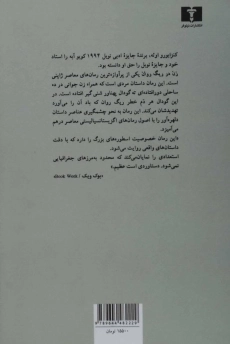 کنزابورو اوئه، برندهٔ جایزهٔ ادبی نوبل ۱۹۹۴ کوبو آبه را استاد
خود و جایزهٔ نوبل را حق او دانسته بود.
زن در ریگ روان یکی از پرآوازه‌ترین رمان‌های معاصر ژاپنی
است. این رمان داستان مردی است که همراه زن جوانی در
ساحلی دورافتاده‌ای ته گودال پهناور شنی گیر افتاده است.
این گودال هر دم خطر ریگ روان که باد آن را می‌آورد
تهدیدشان می‌کند. این رمان به نحو چشمگیری عناصر داستان
دلهره‌آور را با اصول رمان‌های اگزیستانسیالیستی معاصر درهم
می‌آمیزد.
«این رمان خصوصیت اسطوره‌های بزرگ را دارد که با دقت
داستان‌های واقعی روایت می‌شود.
استعدادی را نمایان می‌کند که محدود به مرزهای جغرافیایی
نمی‌شود. دستاوردی است عظیم.»
بوک ویک / Book Week
تومان